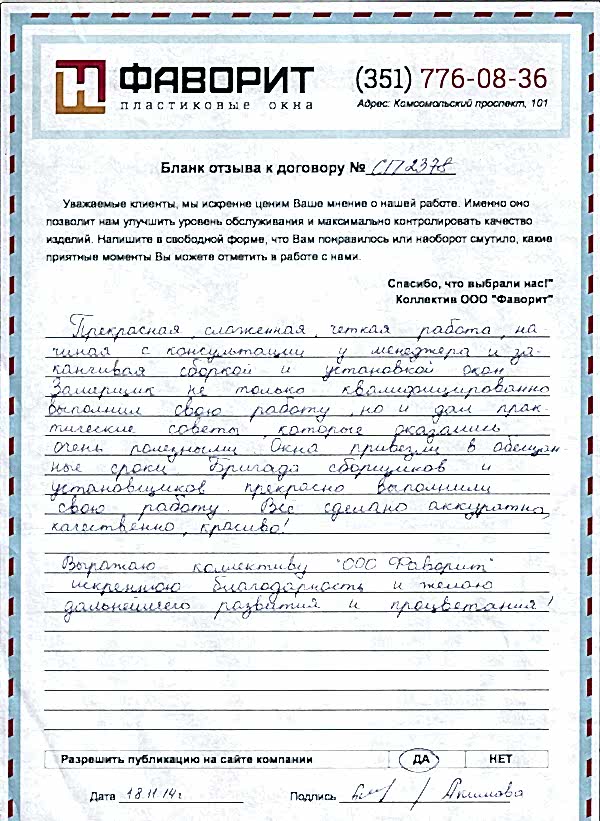 ФАВОРИТ
пластиковые окна
(351) 776-08-36
Адрес: Комсомольский проспект, 101
Бланк отзыва к договору № СП2378
Уважаемые клиенты, мы искренне ценим Ваше мнение о нашей работе. Именно оно
позволит нам улучшить уровень обслуживания и максимально контролировать качество
изделий. Напишите в свободной форме, что Вам понравилось или наоборот смутило, какие
приятные моменты Вы можете отметить в работе с нами.
Спасибо, что выбрали нас!"
Коллектив ООО "Фаворит"
Прекрасная, слаженная, четкая работа, на-
чиная с консультации у менеджера и за-
канчивая сборкой и установкой окон
Замерщик не только квалифицированно
выполнил свою работу, но и дал прак-
тические советы, которые оказались
очень полезными. Окна привезли в обещан-
ные сроки. Бригада сборщиков и
установщиков прекрасно выполнили
свою работу. Все сделано аккуратно,
качественно, красиво!
Выражаю коллективу "ООО Фаворит"
искреннюю благодарность и желаю
дальнейшего развития и процветания!
Разрешить публикацию на сайте компании ДА НЕТ
Дата 18.11.14г. Подпись / Акимова